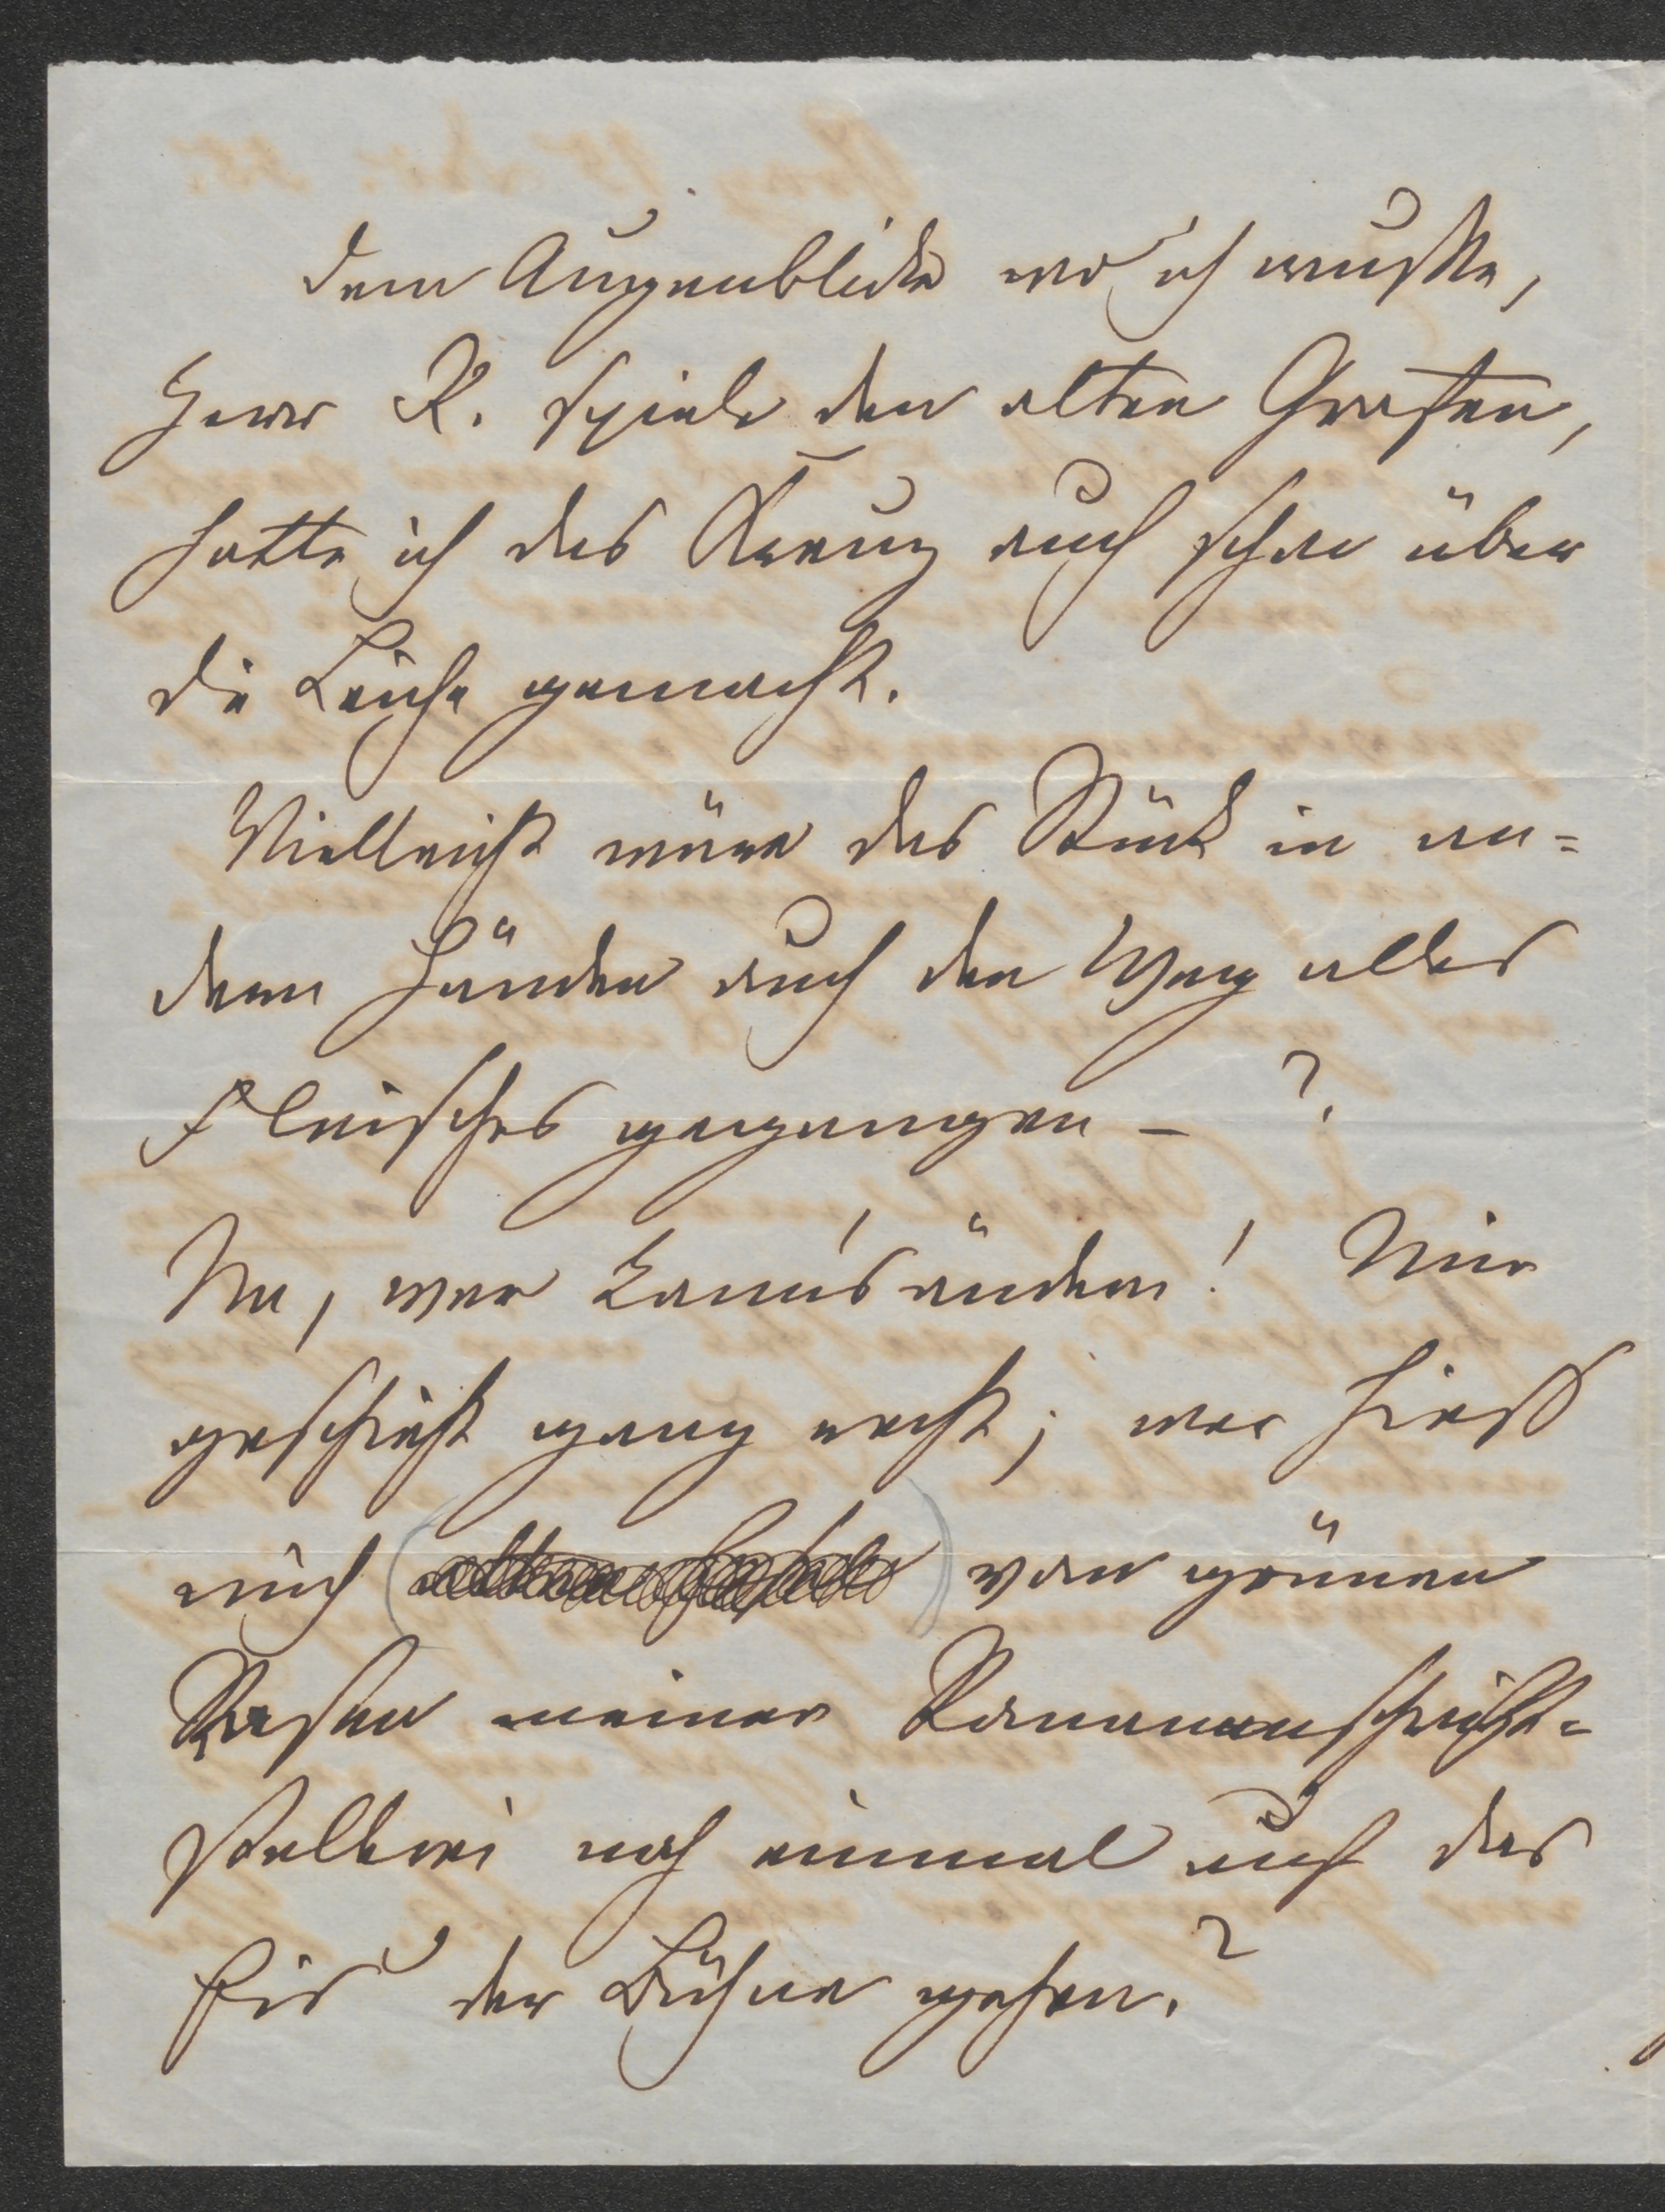 dem Augenblicke wo ich wußte,
Herr R. spiele den alten Grafen,
hatte ich das Kreuz auch schon über
die Leiche gemacht.
Vielleicht wäre das Stück in an=
dern Händen auch den Weg alles
Fleisches gegangen – ?
Na, wer kann's ändern! Mir
geschieht ganz recht; wer hieß
mich von grünen
Rasen meiner Romanenschrift=
stellerei noch einmal auf das
Eis der Bühne gehen?